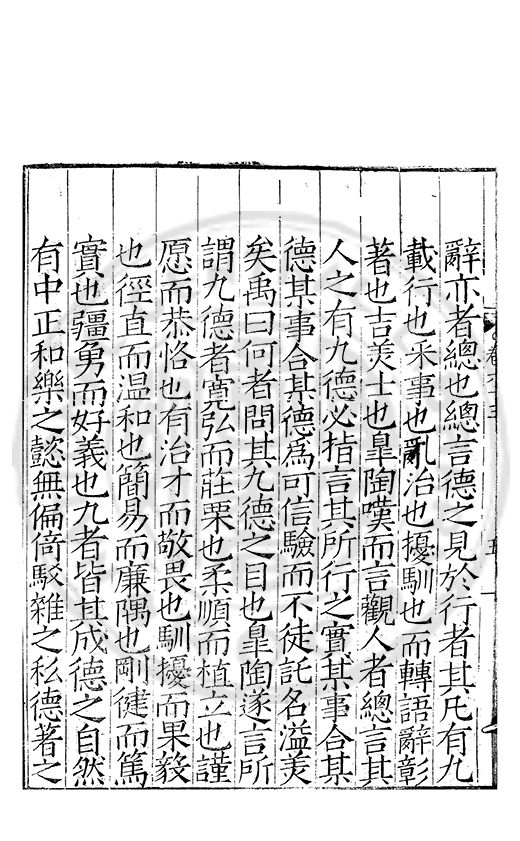 辭亦者總也總言德之見於行者其凡有九
載行也采事也亂治也擾馴也而轉語辭彰
著也吉美士也臯陶嘆而言觀人者總言其
人之有九德必指言其所行之實某事合某
德某事合某德爲可信驗而不徒託名溢美
矣禹曰何者問其九德之目也臯陶遂言所
謂九德者寛弘而莊栗也柔順而植立也謹
愿而恭恪也有治才而敬畏也馴擾而果毅
也徑直而温和也簡易而廉隅也剛健而篤
實也彊勇而好義也九者皆其成德之自然
有中正和樂之懿無偏倚駁雜之私德著之